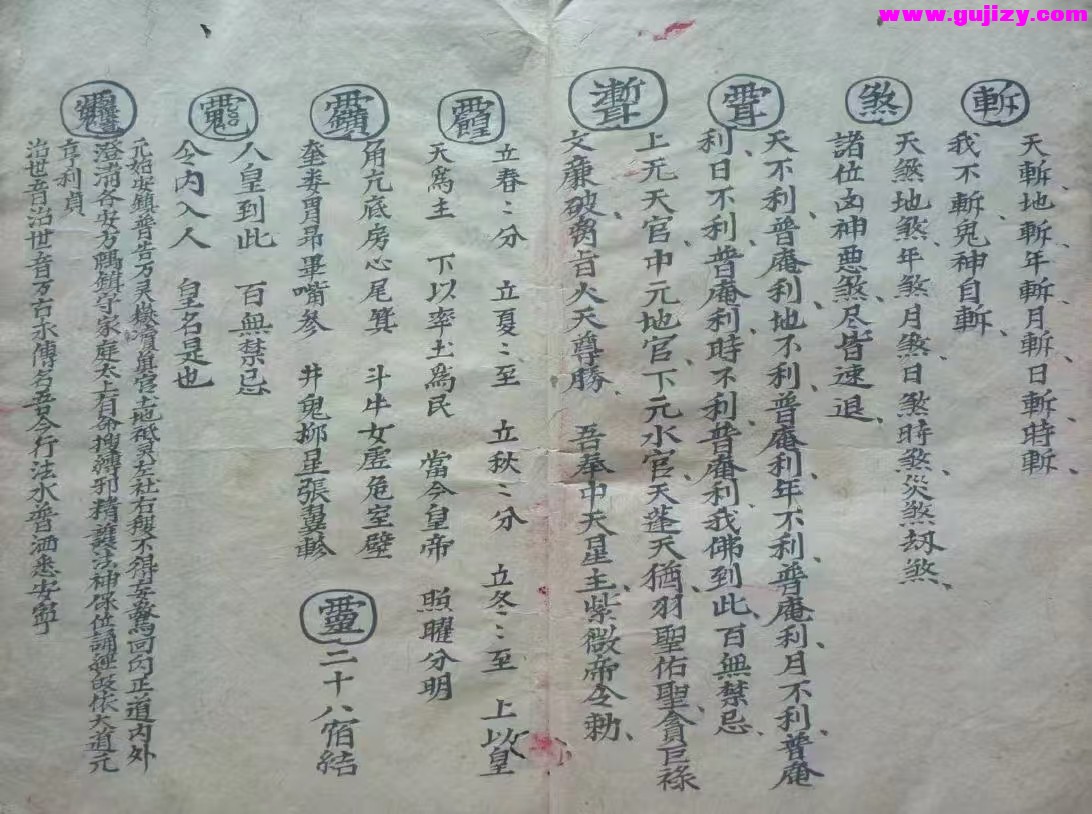 www.gujizy.com
斬
天斬地斬年斬月斬日斬時斬
我不斬鬼神自斬
煞
天煞地煞年煞月煞日煞時煞災煞刼煞
諸位凶神惡煞尽皆速退
天不利普庵利地不利普庵利年不利普庵利月不利普庵
利日不利普庵利時不利普庵利我佛到此百無禁忌
上元天官中元地官下元水官天蓬天猶羽聖佑聖貪巨祿
文廉破 火天尊勝 吾奉中天星主紫微帝令勅
立春〻分 立夏〻至 立秋〻分 立冬〻至 上以皇
天為主 下以率土為民 當今皇帝 照曜分明
角亢底房心尾箕 斗牛女虛危室壁
奎婁胃昴畢嘴參 井鬼柳星張翼軫 二十八宿結
人皇到此 百無禁忌
令內入人 皇名是也
元始安鎮普告万灵嶽瀆眞官土地祇灵左社右稷不得妄驚回向正道內外
澄清各安方隅鎮守家庭太上有命搜縛邪精護法神保位誦經皈依大道元
亨利貞
治世音治世音万古永傳名吾今行法水普洒悉安寧